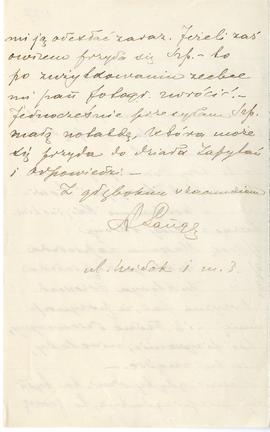 mi ją odesłać zaraz. Jeżeli zaś
owszem przyda się Szp. - to
po zużytkowaniu zechce
mi pan fotogr. zwrócić! -
Jednocześnie przesyłam Szp.
małą notatkę, która może
się przyda do działu zapytań
i odpowiedzi. -
Z głębokim szacunkiem
A
ul. 1 m. 3.